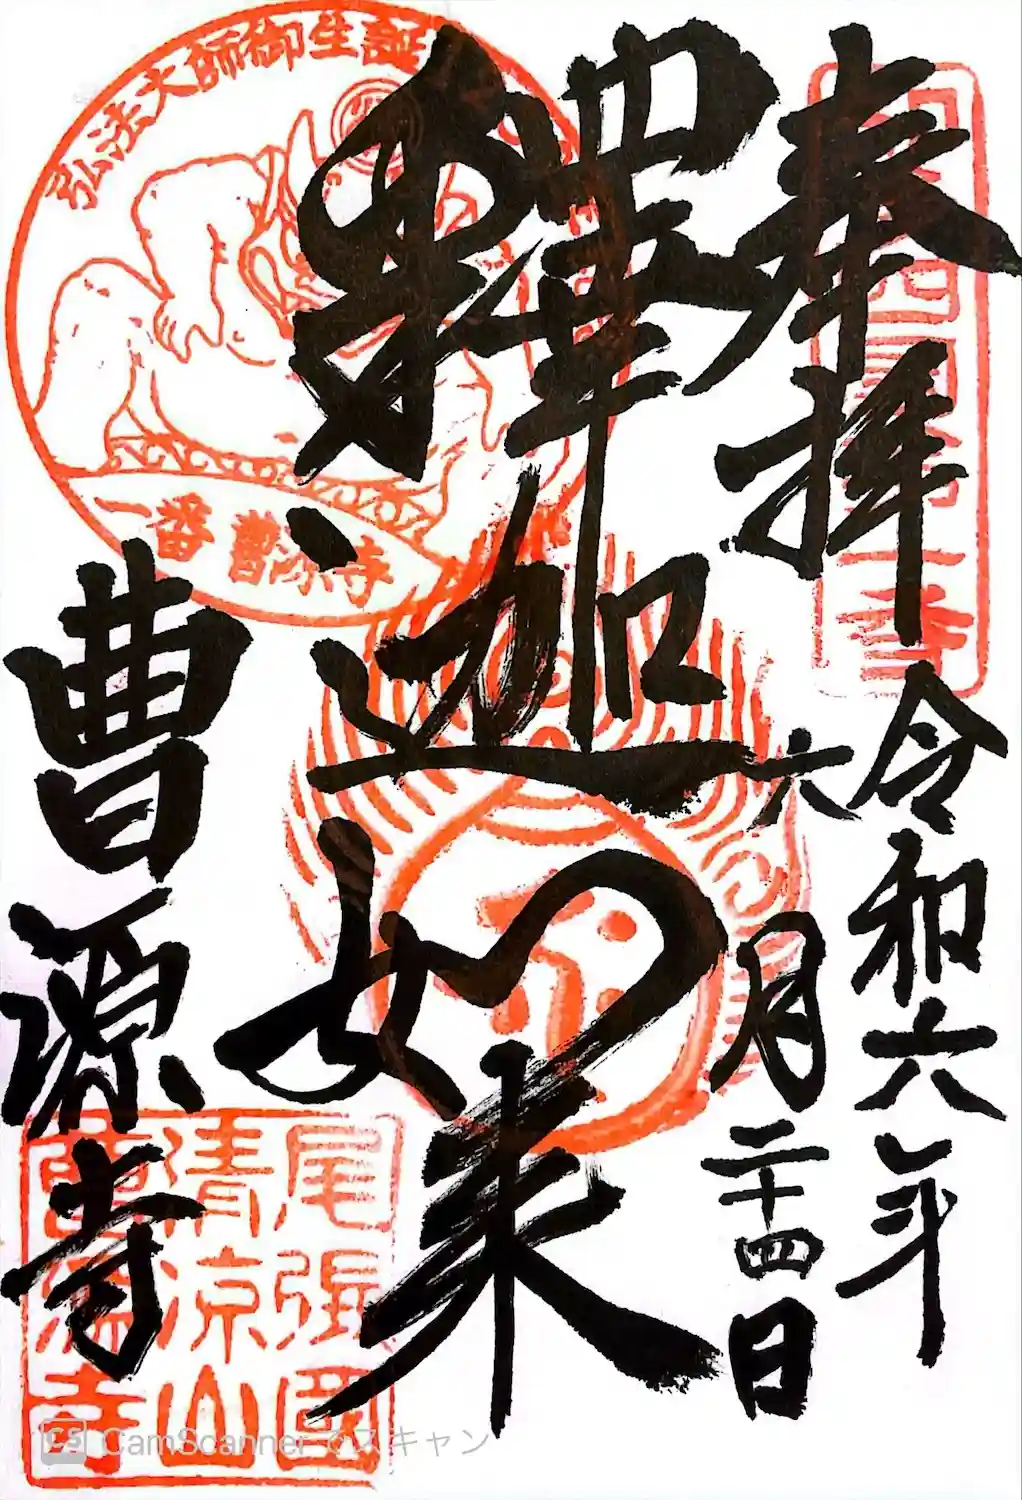 奉拝
令和六年
六月二十四日
釋迦如来
曹源寺
弘法大師御生誕
一番 曹源寺
尾張國
清涼山
曹源寺
CamScannerでスキャン